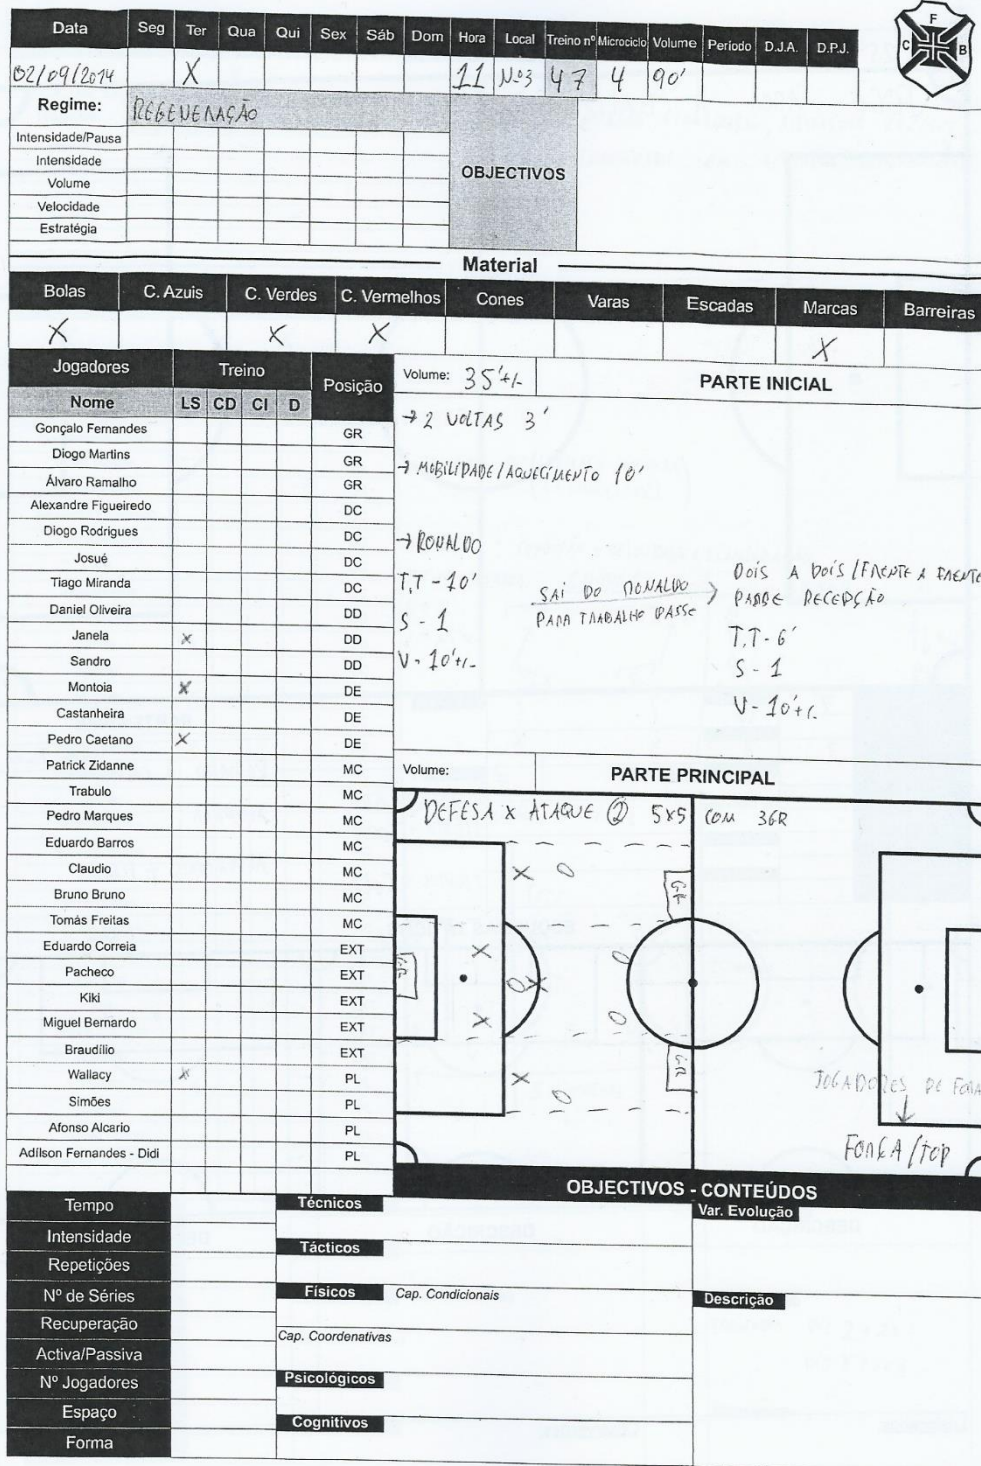 F
C B
Data Seg Ter Qua Qui Sex Sáb Dom Hora Local Treino nº Microciclo Volume Período D.J.A. D.P.J.
02/09/2014 X 11 Nº3 47 4 90'
Regime: REGENERAÇÃO
Intensidade/Pausa
Intensidade
Volume
Velocidade
Estratégia
OBJECTIVOS
Material
Bolas C. Azuis C. Verdes C. Vermelhos Cones Varas Escadas Marcas Barreiras
X X X X
Jogadores Treino Posição
Nome LS CD CI D
Gonçalo Fernandes GR
Diogo Martins GR
Álvaro Ramalho GR
Alexandre Figueiredo DC
Diogo Rodrigues DC
Josué DC
Tiago Miranda DC
Daniel Oliveira DD
Janela X DD
Sandro DD
Montoia X DE
Castanheira DE
Pedro Caetano X DE
Patrick Zidanne MC
Trabulo MC
Pedro Marques MC
Eduardo Barros MC
Claudio MC
Bruno Bruno MC
Tomás Freitas MC
Eduardo Correia EXT
Pacheco EXT
Kiki EXT
Miguel Bernardo EXT
Braudílio EXT
Wallacy X PL
Simões PL
Afonso Alcario PL
Adílson Fernandes - Didi PL
Volume: 35'+/- PARTE INICIAL
→ 2 VOLTAS 3'
→ MOBILIDADE/AQUECIMENTO 10'
→ RONALDO
T.T - 10'
S - 1
V - 10'+/-
SAI DO RONALDO
PARA TRABALHO PASSE
DOIS A DOIS/FRENTE A FRENTE
PASSE RECEPÇÃO
T.T - 6'
S - 1
V - 10'+/-
Volume: PARTE PRINCIPAL
DEFESA X ATAQUE 2 5x5 COM 3GR
X O
G.R
X O
G.R O X
X O
G.R
X O
JOGADORES DE FORA
FORÇA/TOP
OBJECTIVOS - CONTEÚDOS
Tempo
Intensidade
Repetições
Nº de Séries
Recuperação
Activa/Passiva
Nº Jogadores
Espaço
Forma
Técnicos
Tácticos
Físicos Cap. Condicionais
Cap. Coordenativas
Psicológicos
Cognitivos
Var. Evolução
Descrição